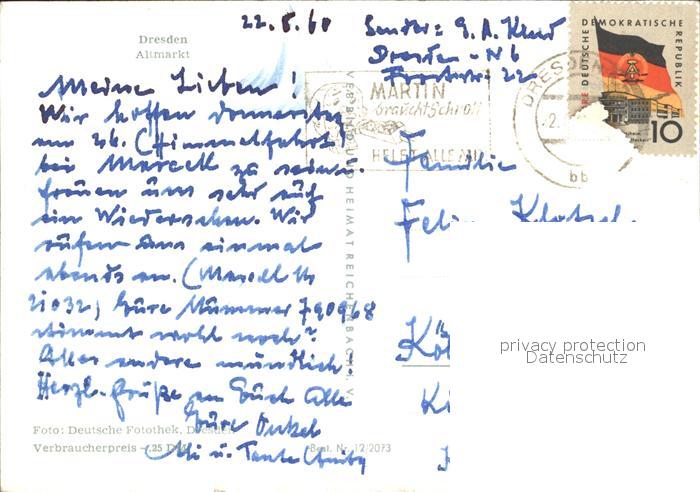 22.5.60
Sender: G. A.
Dresden - N 6
22
Dresden
Altmarkt
Meine Lieben!
Wir hoffen Donnerstag
am 26. (Himmelfahrt)
bei Marcell zu sein u.
freuen uns sehr auf
ein Wiedersehen. Wir
rufen dann einmal
abends an. (Marcell
21032) Eure Nummer 790968
stimmt wohl noch?
Alles andere mündlich
Herzl. Grüße an Euch Alle
Eure Onkel
u. Tante
Foto: Deutsche Fotothek, Dresden
Verbraucherpreis -,25 DM
Best. Nr. 12/2073
VEB BILD UND HEIMAT REICHENBACH i. V.
MARTIN
braucht Schrott
HELFT ALLE MIT
DRESDEN
bb
DEUTSCHE DEMOKRATISCHE REPUBLIK
10
Familie
privacy protection
Datenschutz